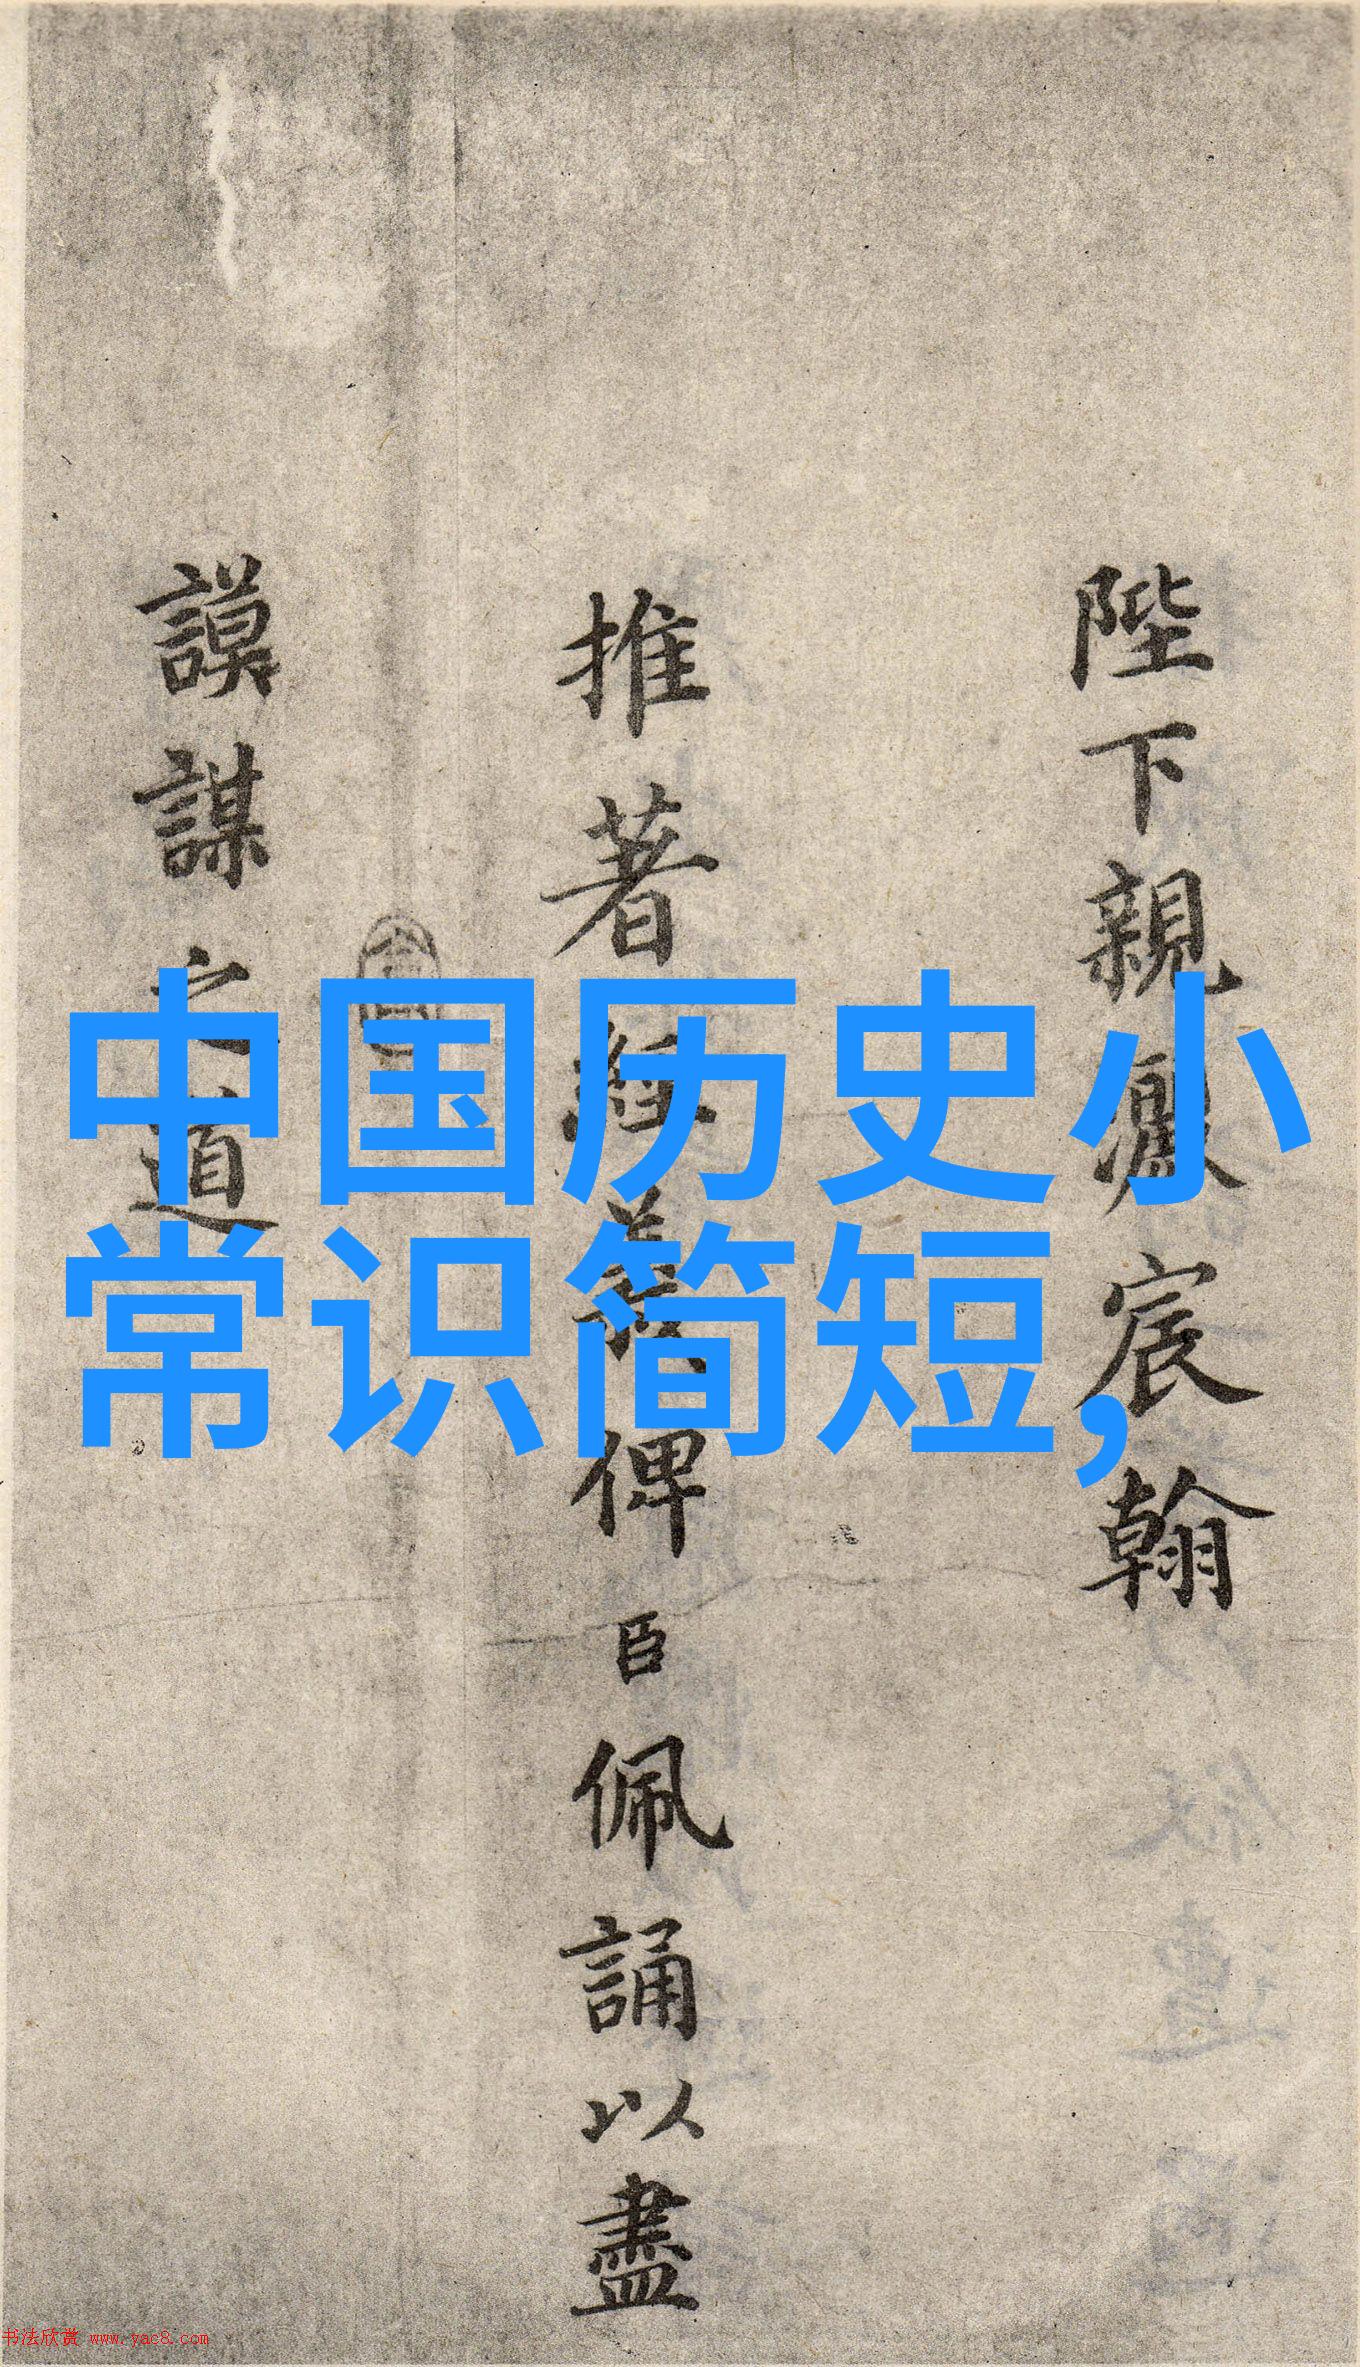 陛下親灑宸翰
推著經義俾臣佩誦以盡
謨謀之道
中国历史小
常识简短,
书法欣赏 www.yac8.com